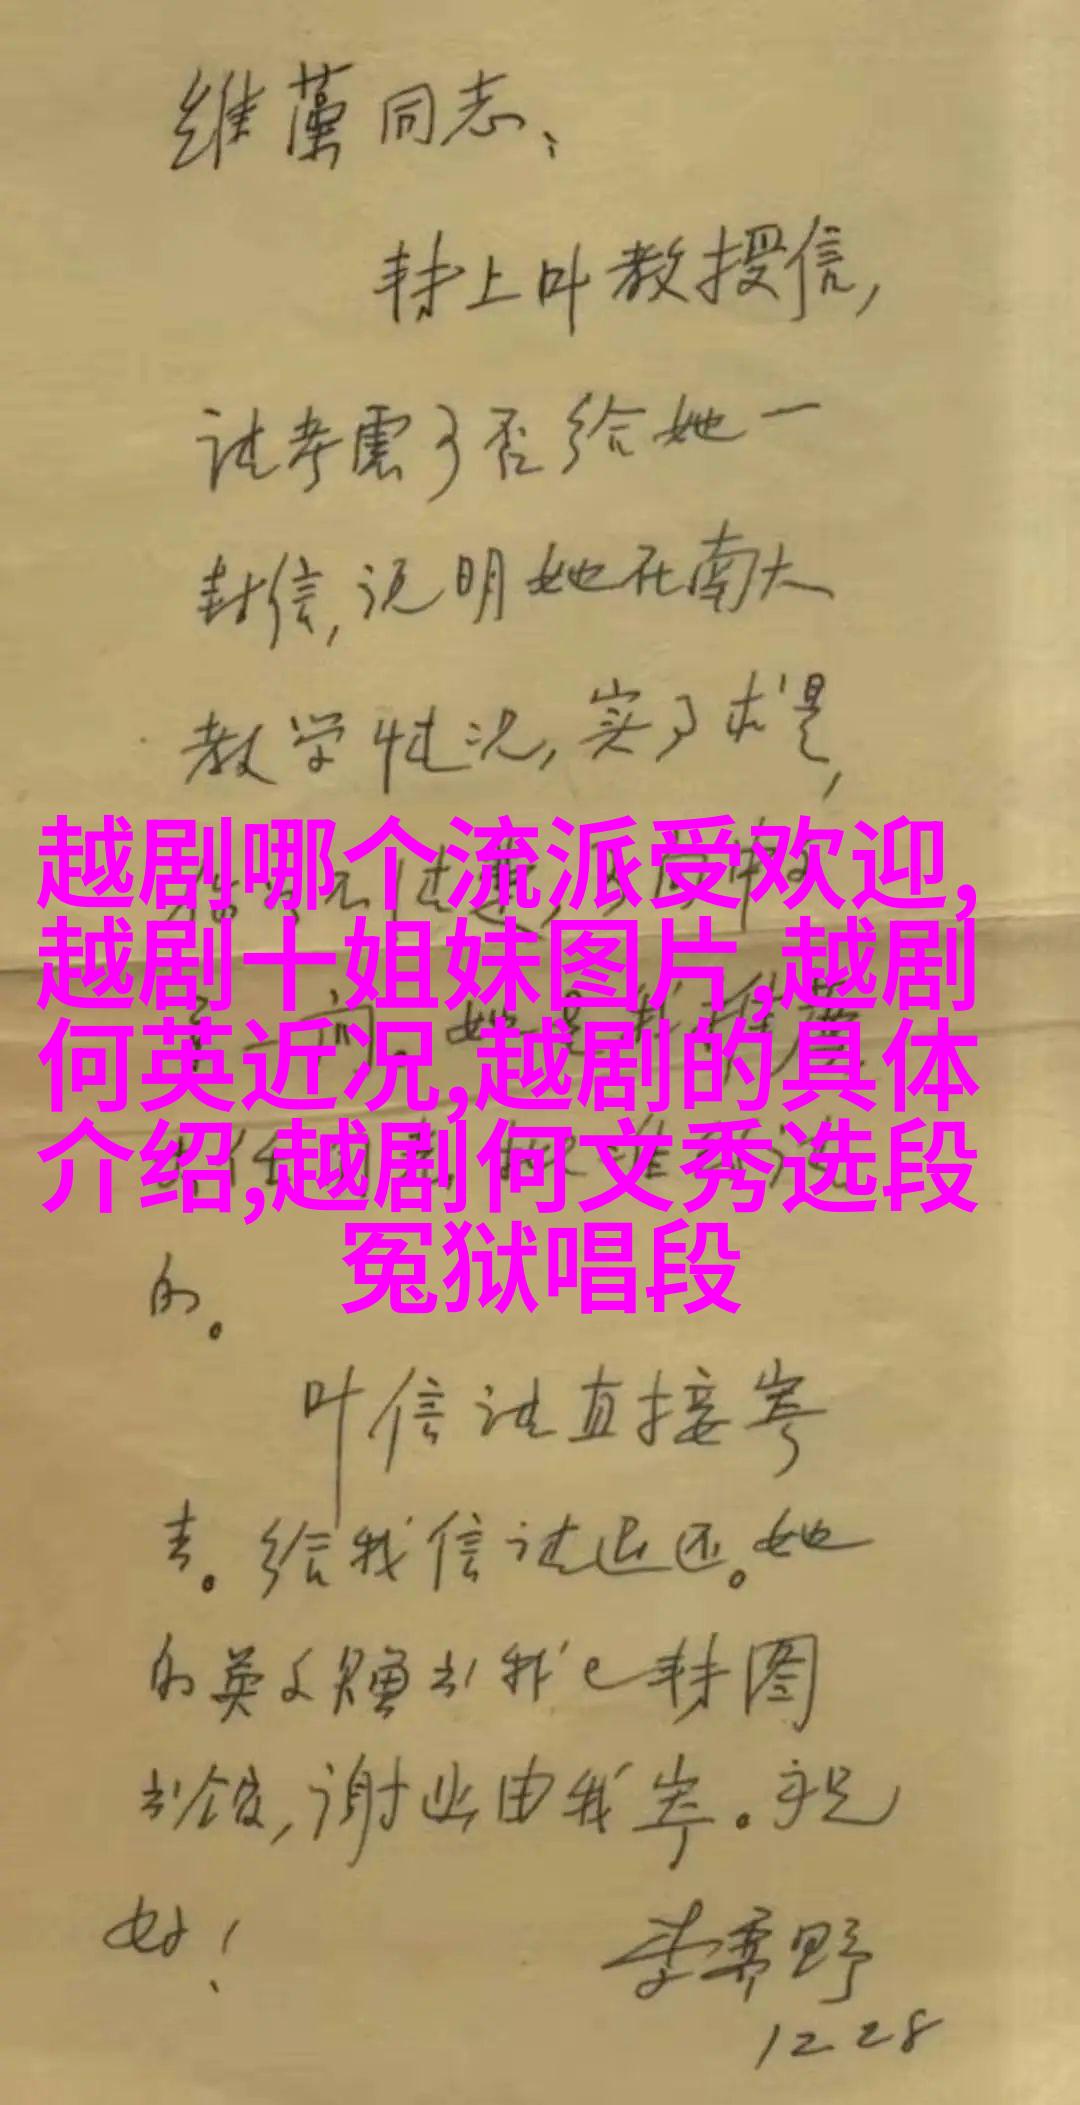 维藻同志：
转上叶教授信，
请考虑可否给她一
封信，说明她在南大
教学情况，实事求是，
越剧哪个流派受欢迎,
越剧十姐妹图片,越剧
何英近况,越剧的具体
介绍,越剧何文秀选段
冤狱唱段
的。
叶信请直接寄
去。给我信请退还。她
的英文赠书我已转图
书馆，谢也由我寄。祝
好！
李霁野
12 28